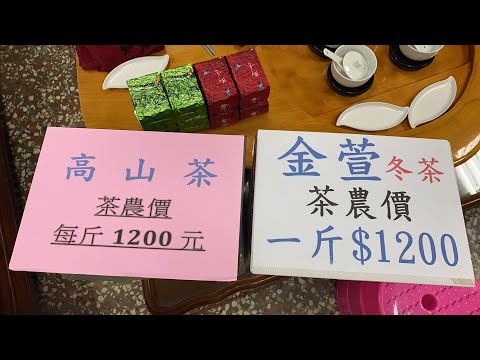 高山茶
茶農價
每斤 1200 元
金萱冬茶
茶農價
一斤$1200